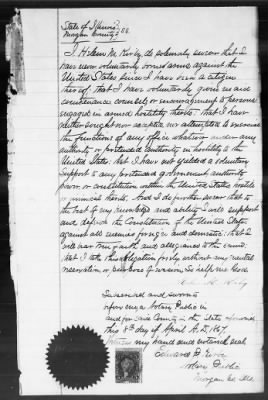 State of Illinois
Morgan County } SS.
I Hiram M. Kirby do solemnly swear that I
have never voluntarily borne arms against the
United States since I have been a citizen
thereof, that I have voluntarily given no aid
countenance counsel or encouragement to persons
engaged in armed hostility thereto. That I have
neither sought nor accepted nor attempted to exercise
the functions of any office whatever under any
authority or pretended authority in hostility to the
United States. That I have not yielded a voluntary
support to any pretended government authority
power or constitution within the United States hostile
or inimical thereto. And I do further swear that to
the best of my knowledge and ability I will support
and defend the Constitution of the United States
against all enemies foreign and domestic: that I
will bear true faith and allegiance to the same.
That I take this obligation freely without any mental
reservation or purpose of evasion, So help me God
Kirby
Subscribed and sworn to
before me a Notary Public in
and for said County in the State aforesaid
this 8th day of April A.D. 1867.
Witness my hand and notarial seal
Edward
Notary Public
Morgan Co. Ills